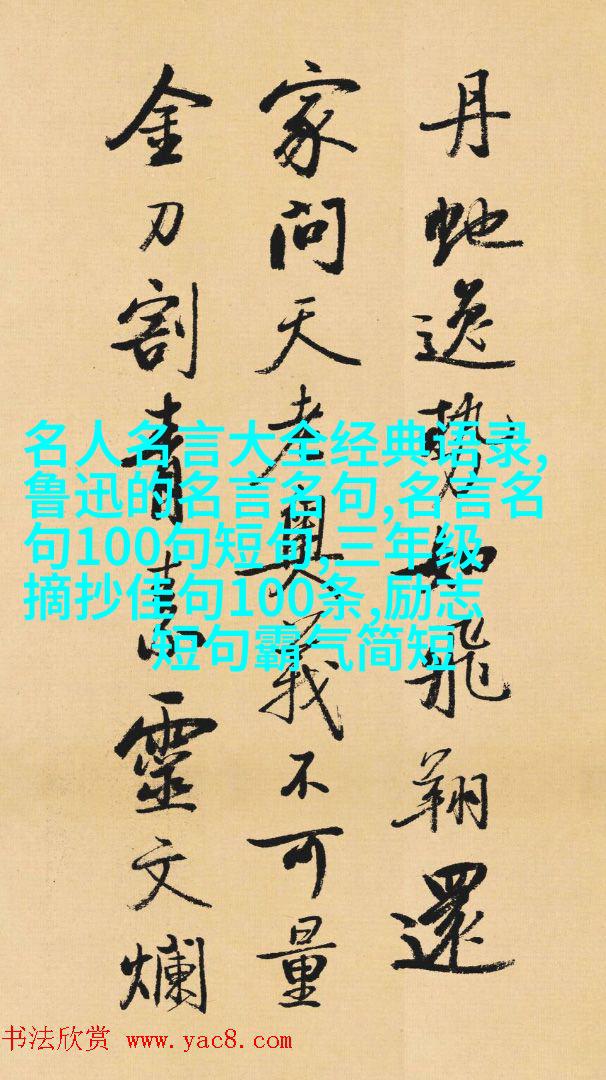 丹虵逸勢如飛翔還
家問天老奧義不可量
金刀割青素靈文爛
名人名言大全经典语录,
鲁迅的名言名句,名言名
句100句短句,三年级
摘抄佳句100条,励志
短句霸气简短
书法欣赏 www.yac8.com